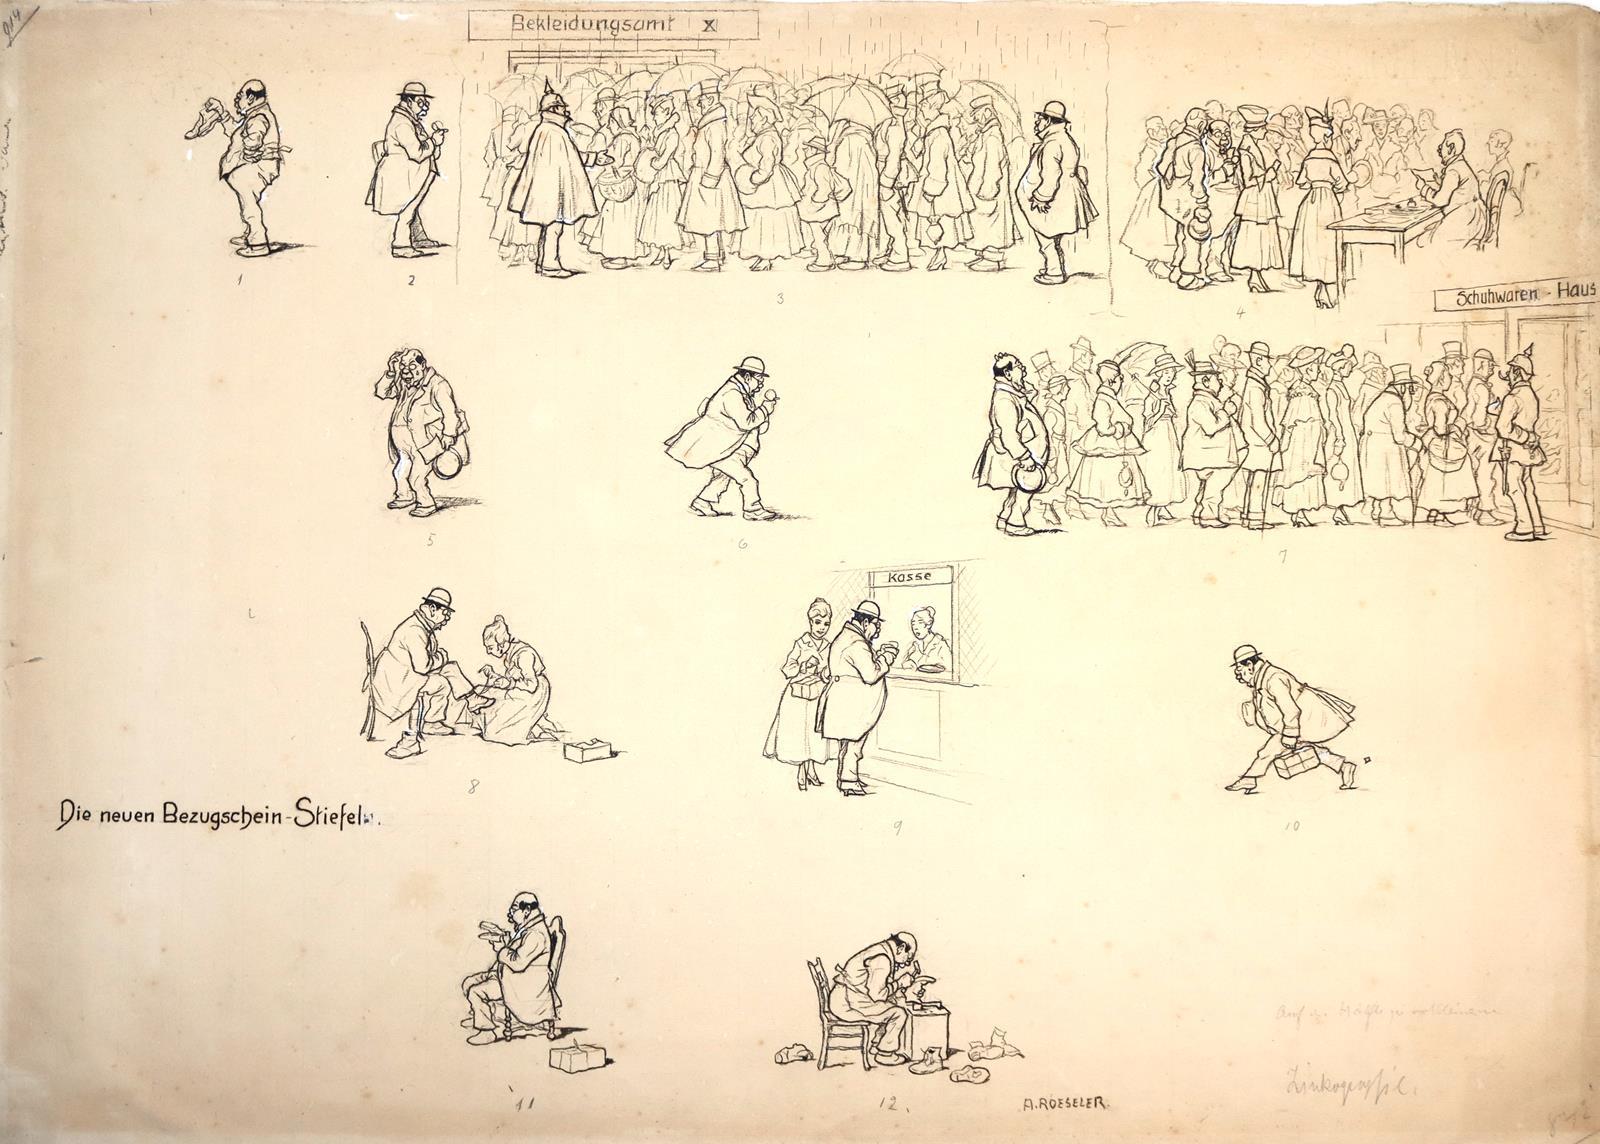 914
Bekleidungsamt X
1
2
3
4
Schuhwaren-Haus
5
6
7
Kasse
8
9
10
Die neuen Bezugschein-Stiefel.
11
12.
A. ROESELER.
Auf
Zinkographie.